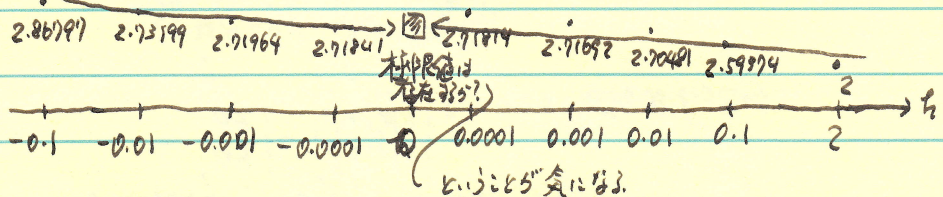 2.86797 2.73199 2.71964 2.71841 2.71814 2.71692 2.70481 2.59374 2
極限値は
存在するか?
h
-0.1 -0.01 -0.001 -0.0001 0 0.0001 0.001 0.01 0.1 2
ということが気になる.